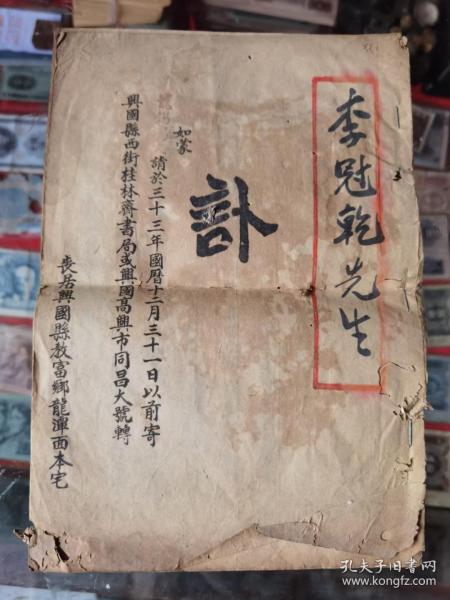 李冠乾先生
訃
如蒙
請於三十三年國曆十二月三十一日以前寄
興國縣西街桂林齋書局或興國高興市同昌大號轉
喪居興國縣教富鄉龍潭面本宅
孔夫子旧书网
www.kongfz.com